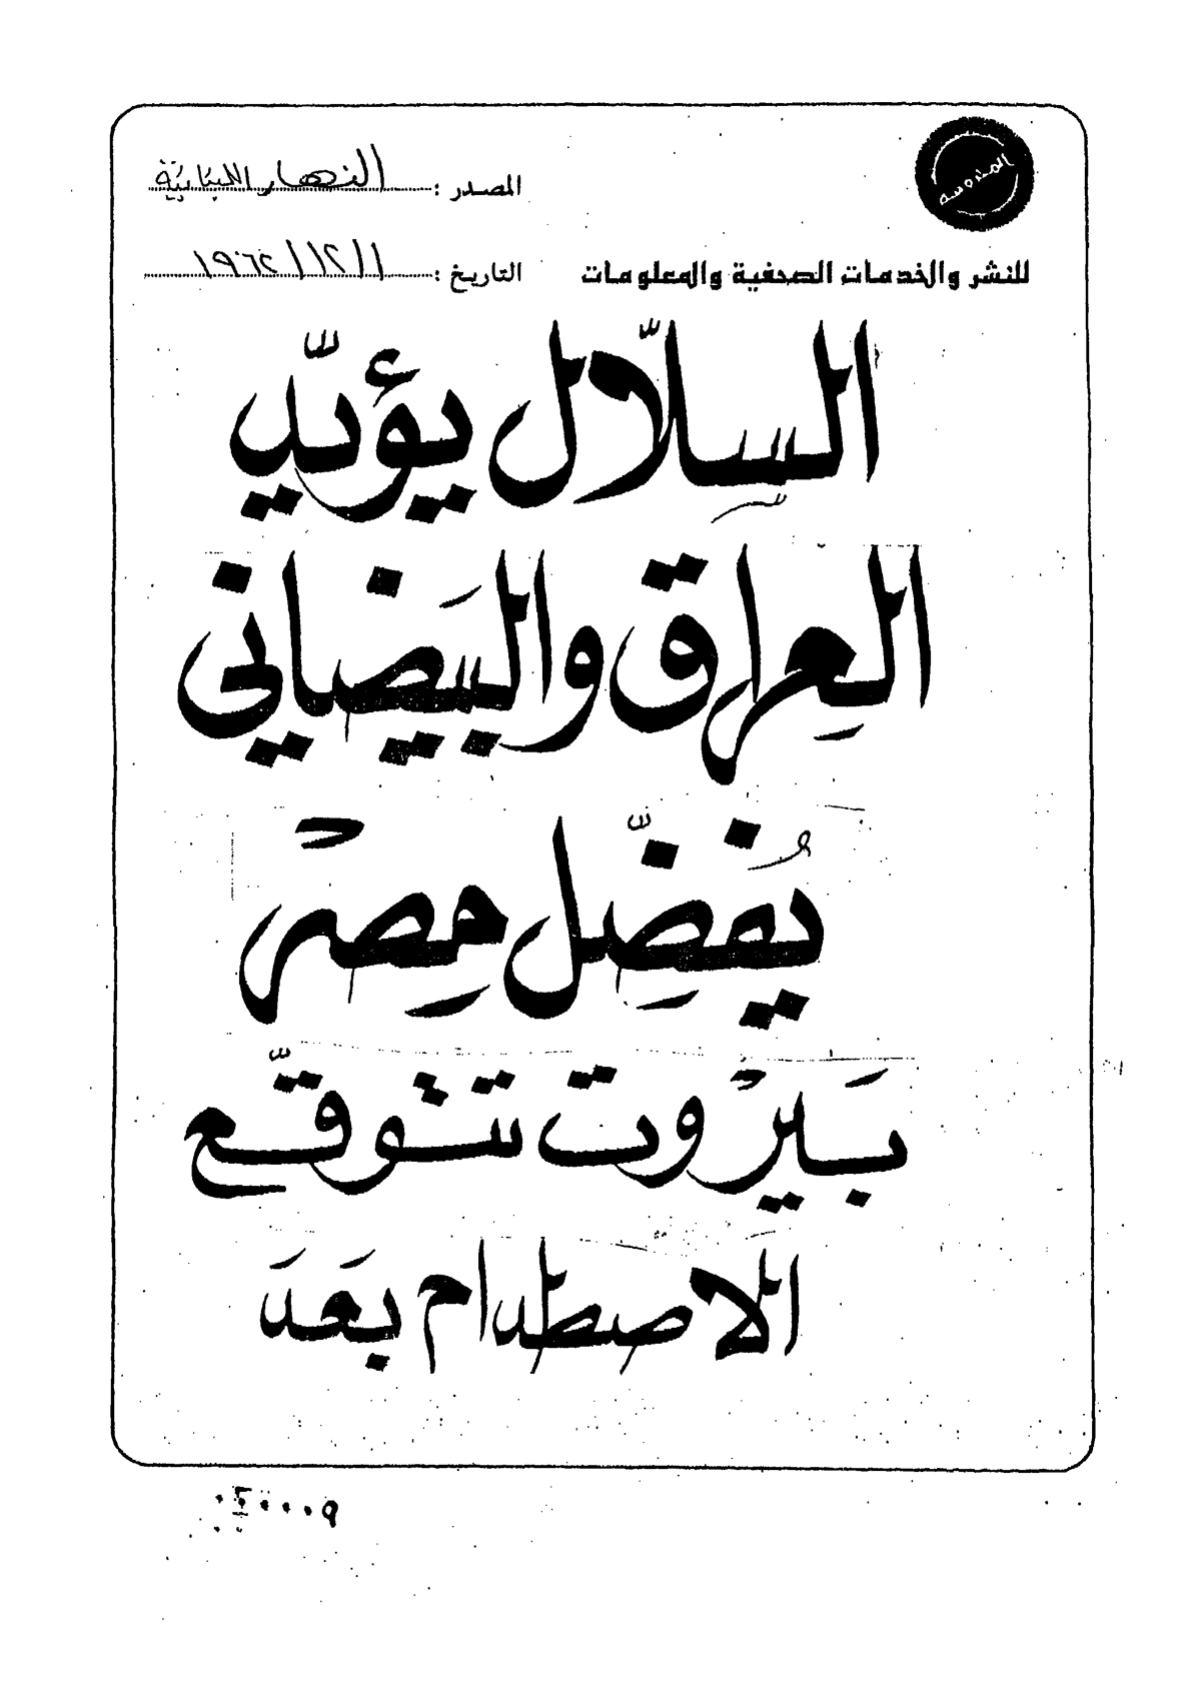 المحروسة
المصدر : النهار اللبنانية
للنشر والخدمات الصحفية والمعلومات
التاريخ : ١/١٢/١٩٦٢
السِّلّال يؤيّد
العِراق والبَيضاني
يُفضِّل مِصرْ
بَيرْوت تتوقّع
الاَصطدام بعَدَ